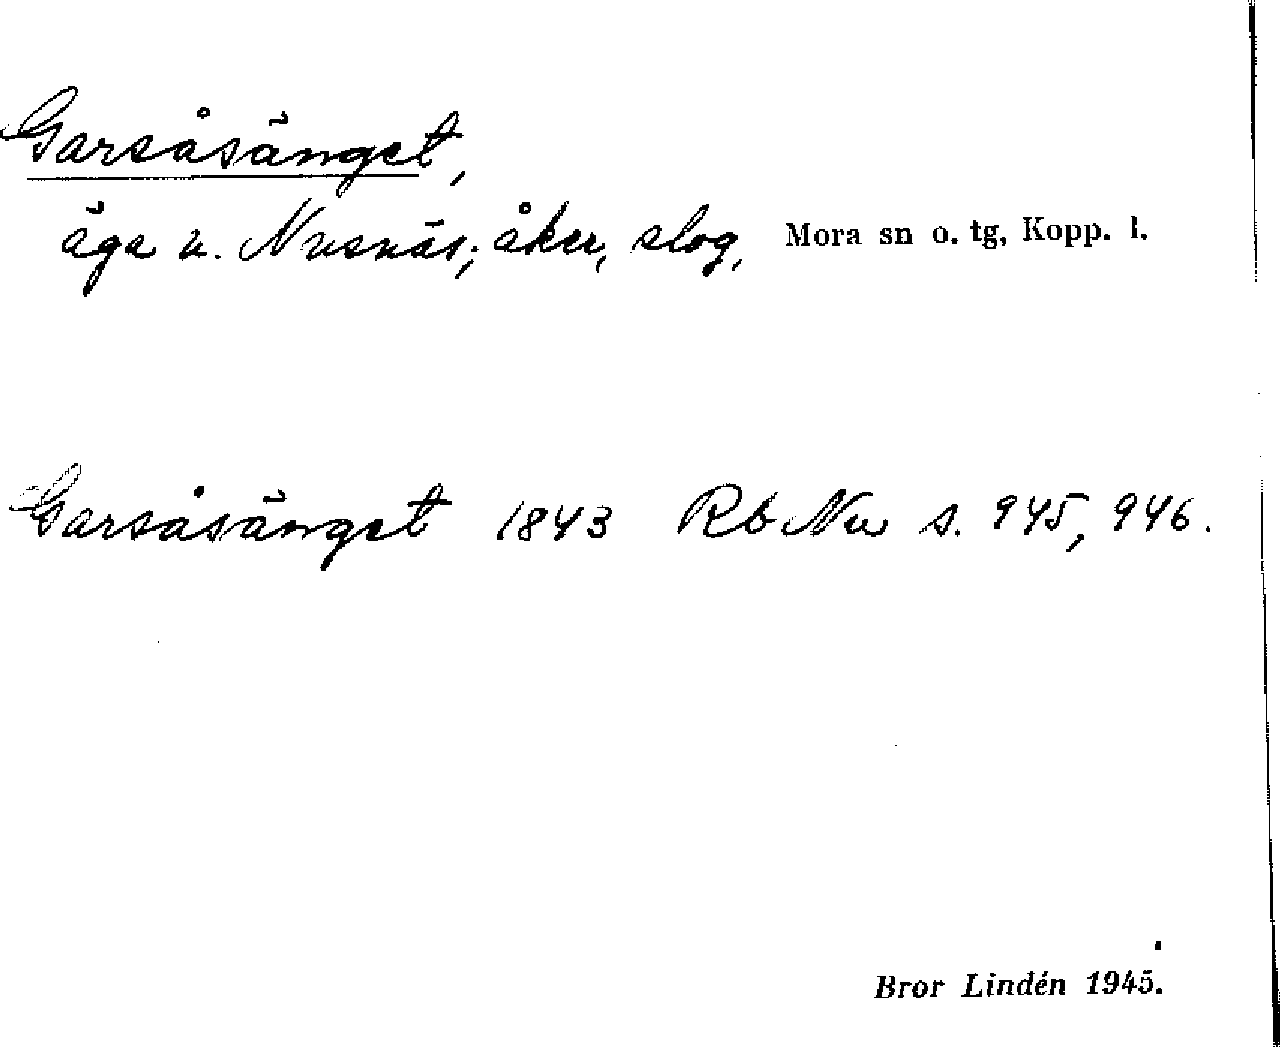 Garsåsänget,
äga u. Nusnäs; åker, slog, Mora sn o. tg, Kopp. l.
Garsåsänget 1843 Rb Nu s. 945, 946.
Bror Lindén 1945.